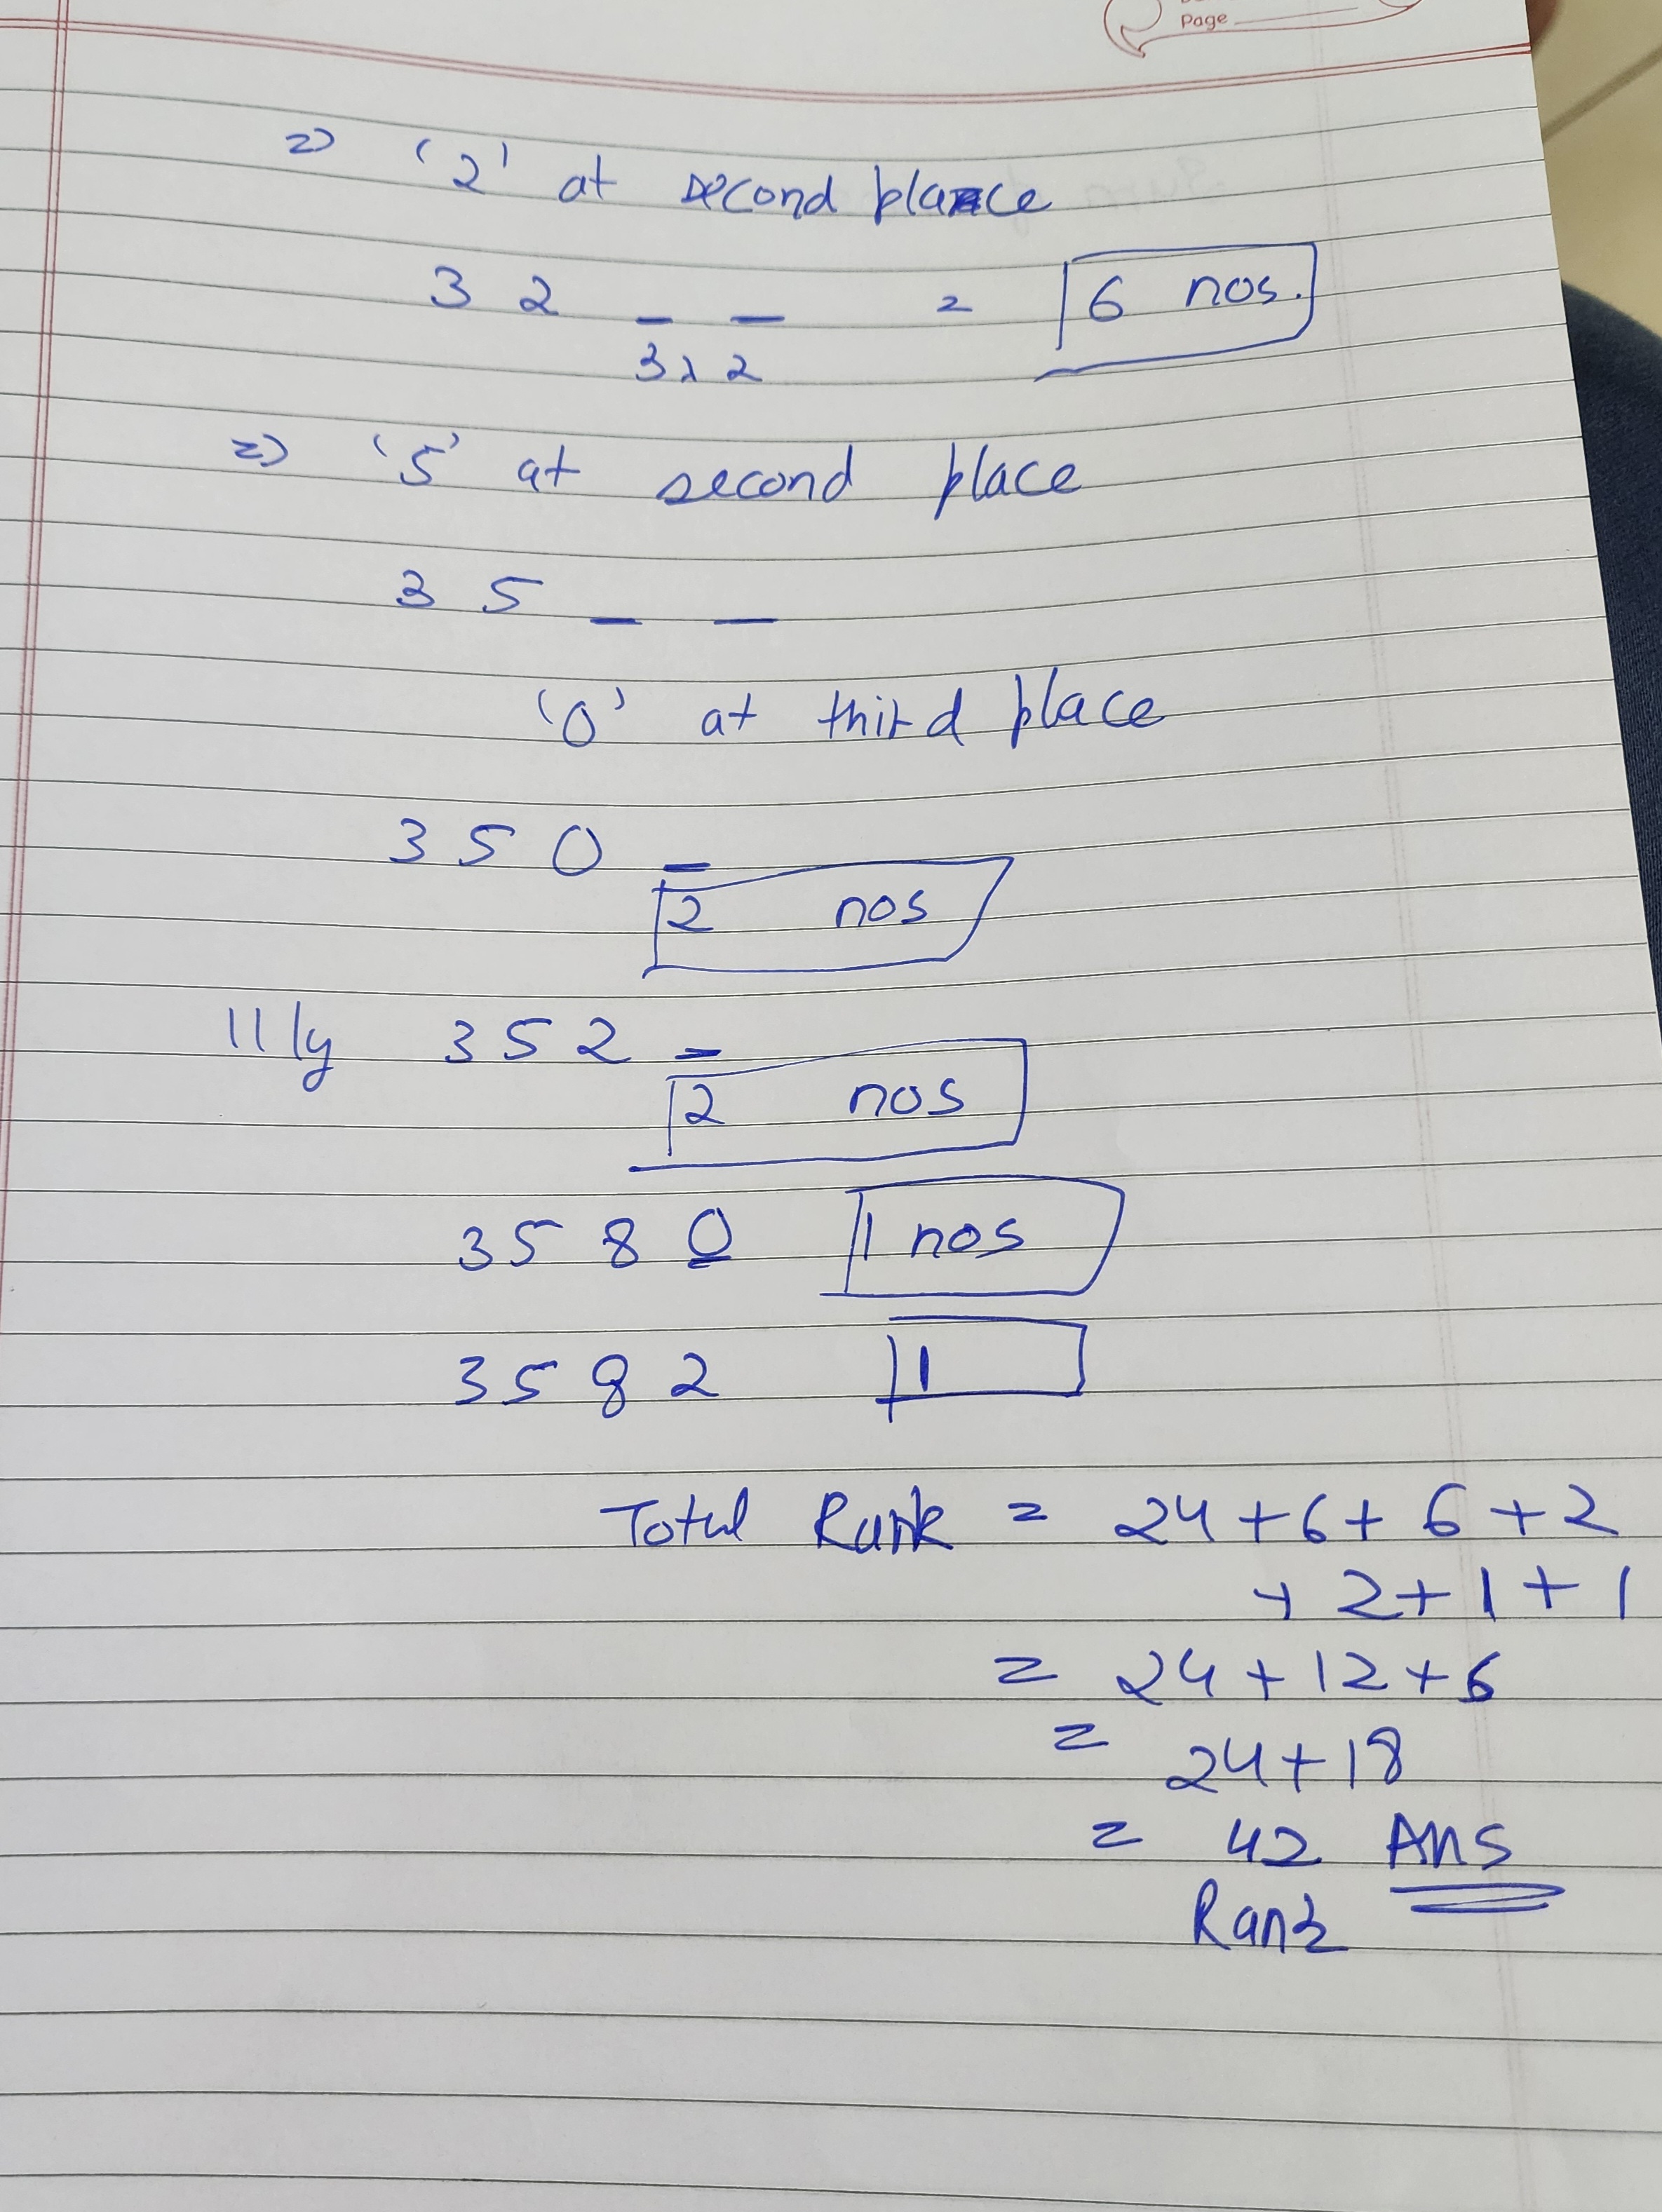 Page
=> '2' at second place
3 2 _ _ = 6 nos.
3 x 2
=> '5' at second place
3 5 _ _
'0' at third place
3 5 0 _
2 nos
11ly 3 5 2 _
2 nos
3 5 8 0 1 nos
3 5 8 2 1
Total Rank = 24 + 6 + 6 + 2
+ 2 + 1 + 1
= 24 + 12 + 6
= 24 + 18
= 42 Ans
Rank